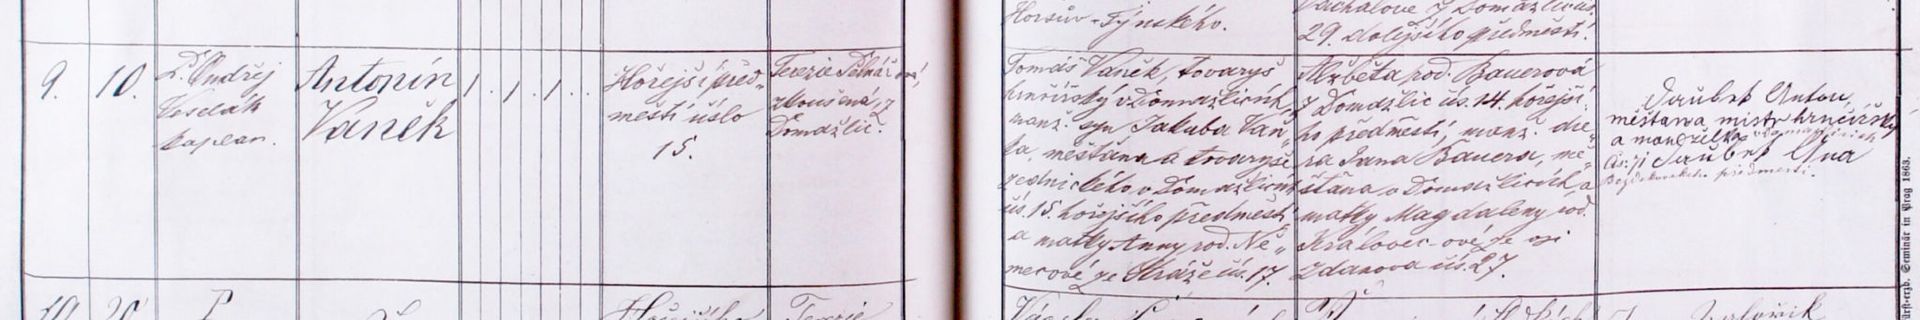 Horšův-Týnského.
29. dolejšího předměstí.
9.
10.
P. Ondřej
kaplan.
Antonín
Vaněk
1. 1. 1.
Hořejší před„
městí číslo
15.
Terezie
zkoušená, z
Domažlic.
Tomáš Vaněk, tovaryš
hrnčířský v Domažlicích,
manž. syn Jakuba Vaň„
ka, měštana a tovaryše
zednického v Domažlicích
čís. 15. hořejšího předměstí
a matky Anny rod. Ně„
merové ze Stráže čís. 17.
Alžběta rod. Bauerová
z Domažlic čís. 14. hořejší„
ho předměstí, manž. dce„
ra Jana Bauera, mě„
štana v Domažlicích, a
matky Magdaleny rod.
Královec-ové ze vsi
Zdanova čís. 27.
Anton,
měštana mistr hrnčířský
a manželka v Domažlicích
čís: 71 Ana
předměstí.
10.
20.
P.
Hořejšího
Terezie
Václav
Fürst-erzb. Seminär in Prag 1863.